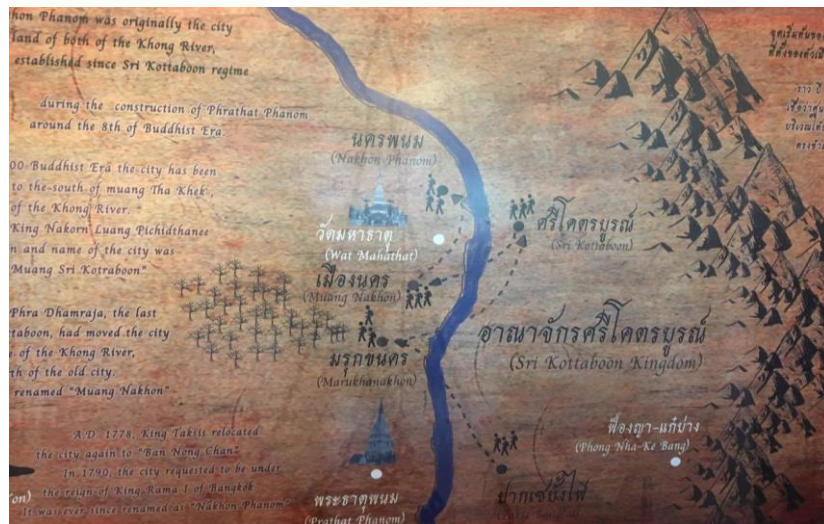 hon Phanom was originally the city
land of both of the Khong River,
established since Sri Kottaboon regime
during the construction of Phrathat Phanom
around the 8th of Buddhist Era.
00 Buddhist Era the city has been
to the south of muang Tha Khek,
of the Khong River.
King Nakorn Luang Pichidthanee
n and name of the city was
Muang Sri Kotraboon"
Phra Dhamraja, the last
taboon, had moved the city
e of the Khong River,
th of the old city.
renamed "Muang Nakhon"
A.D. 1778, King Taksis relocated
the city again to "Ban Nong Chan"
In 1790, the city requested to be under
the reign of King Rama I of Bangkok
It was ever since renamed as "Nakhon Phanom"
นครพนม
(Nakhon Phanom)
วัดมหาธาตุ
(Wat Mahathat)
เมืองนคร
(Muang Nakhon)
มรุกขนคร
(Marukhanakhon)
พระธาตุพนม
(Prathat Phanom)
ศรีโคตรบูรณ์
(Sri Kottaboon)
อาณาจักรศรีโคตรบูรณ์
(Sri Kottaboon Kingdom)
ฟองญา-แก๋บ่าง
(Phong Nha-Ke Bang)
ปากเซบั้งไฟ
จุดเริ่มต้นของ
ราว ปี